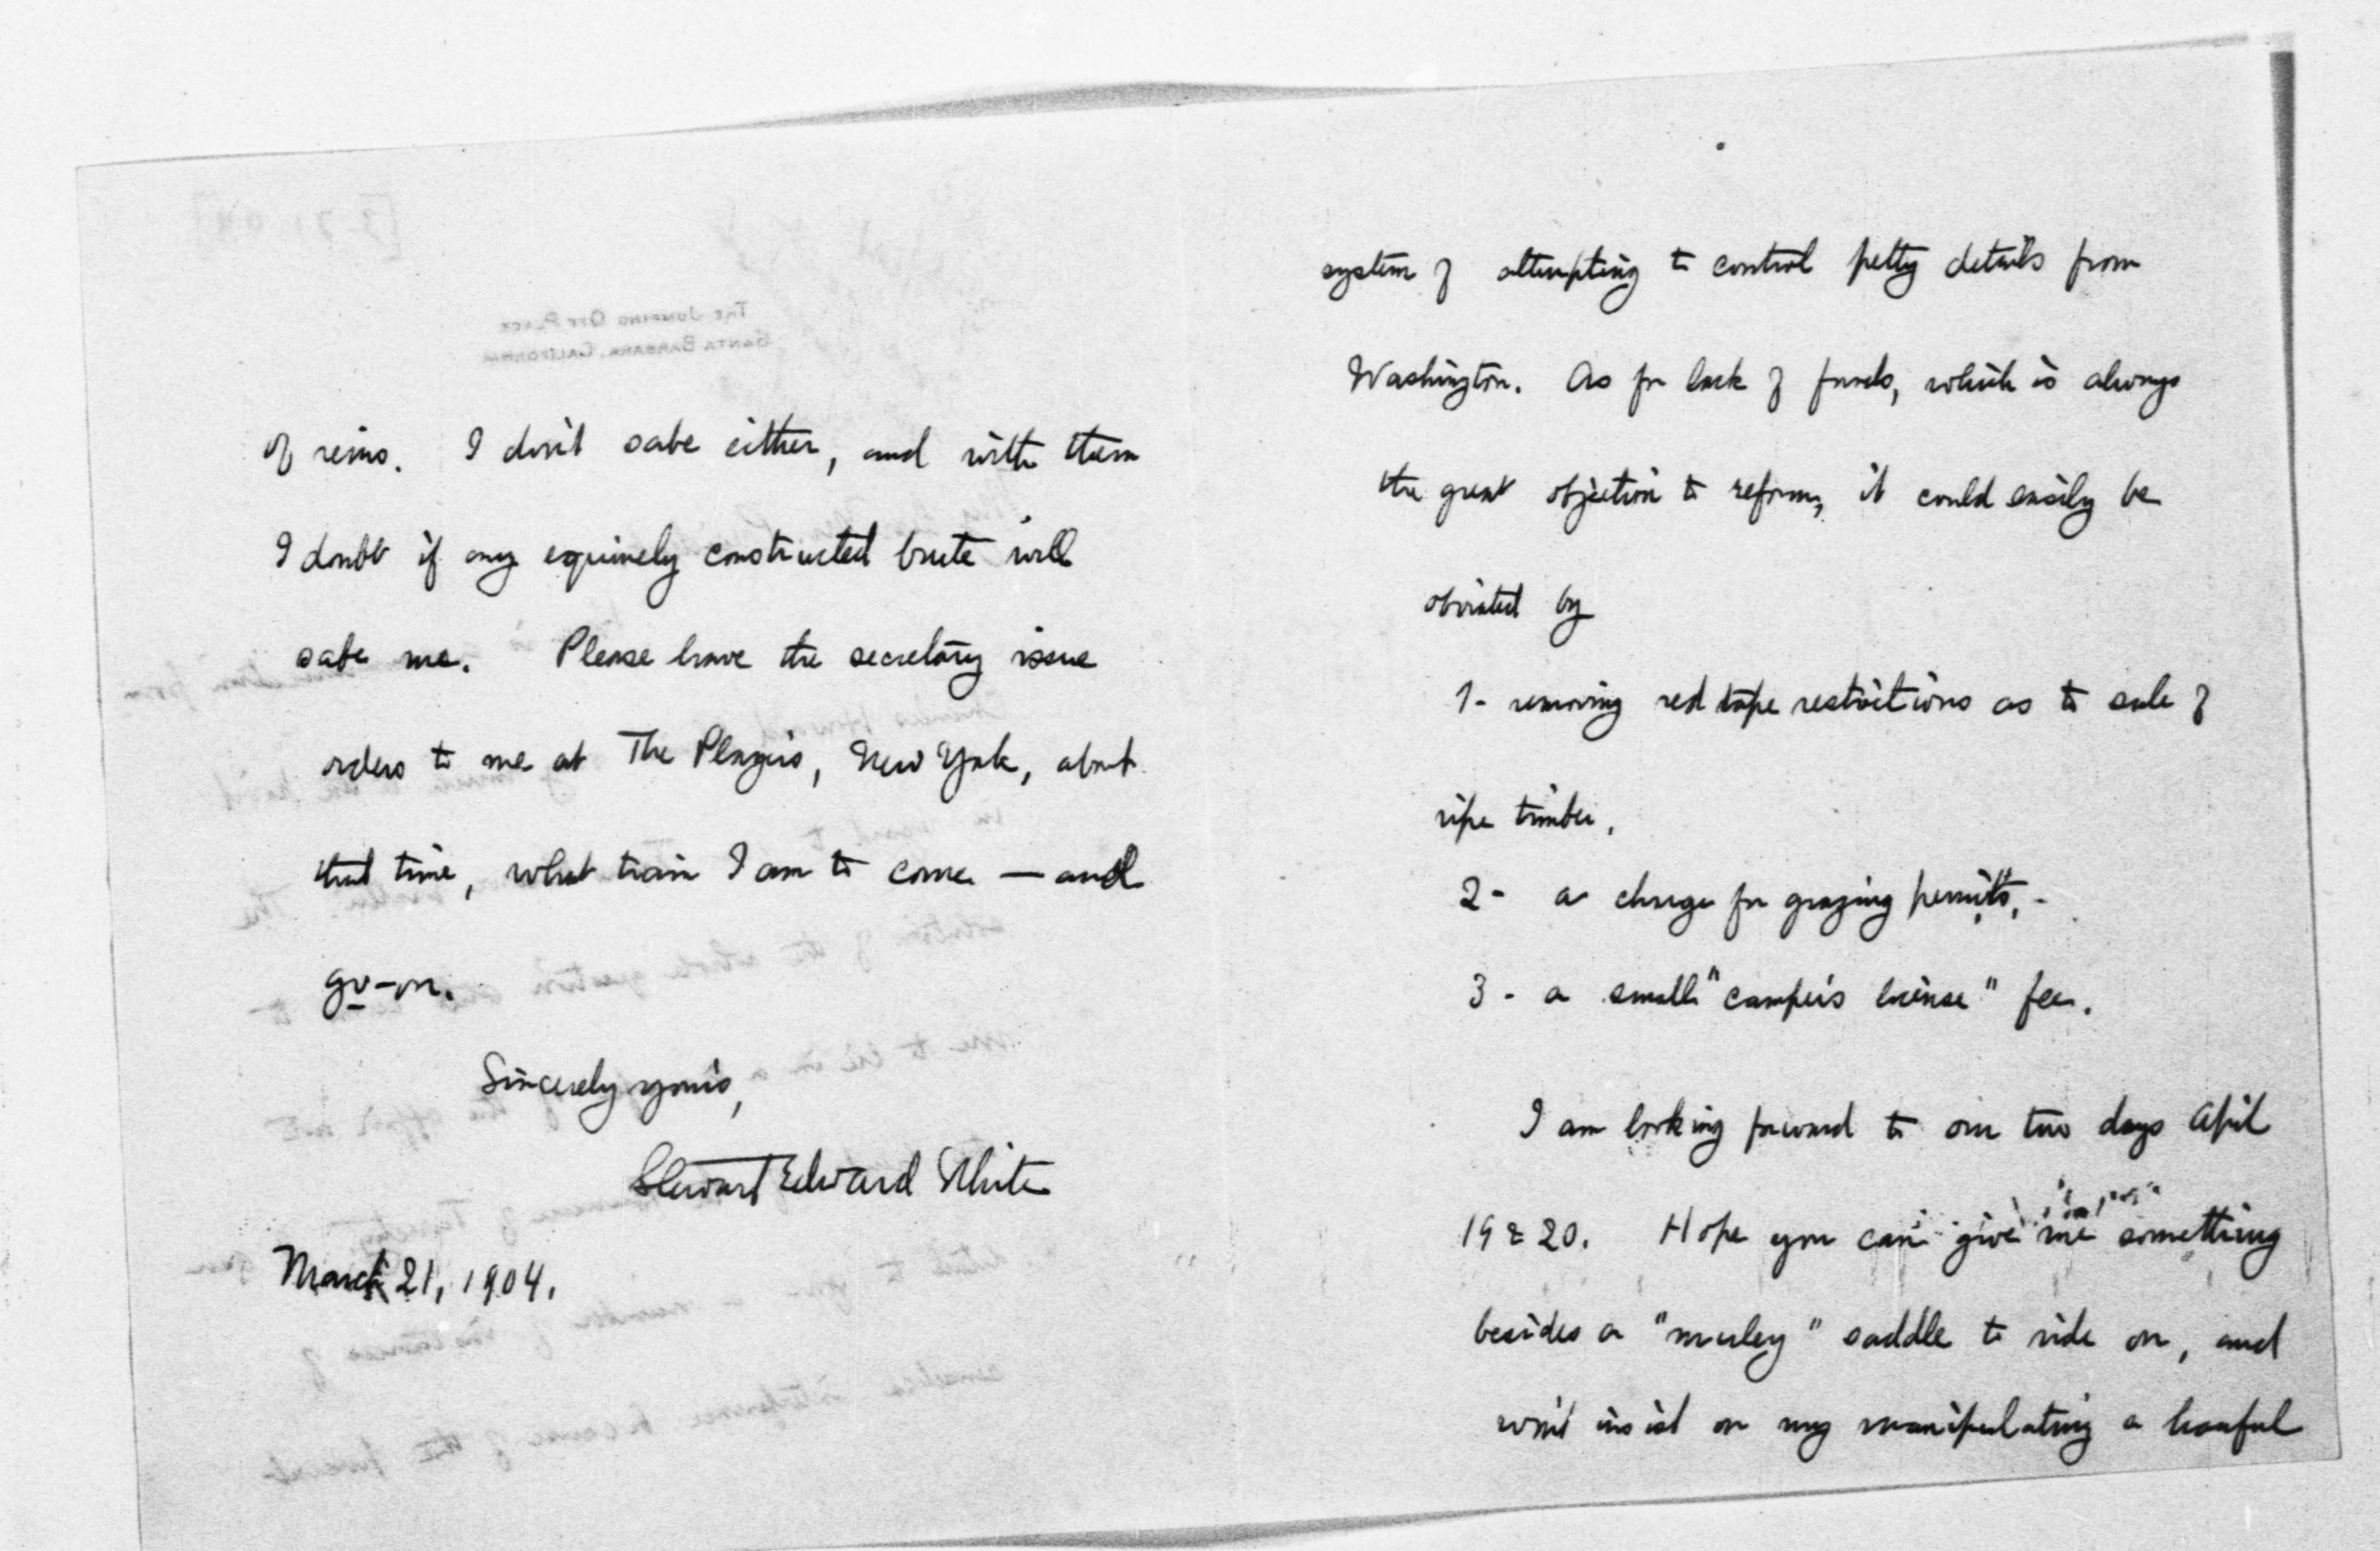 of reins. I don't sabe either, and with them
I doubt if any equinely constructed brute will
sabe me. Please have the secretary issue
orders to me at The Players, New York, about
that time, what train I am to come — and
go-on.
Sincerely yours,
Stewart Edward White
March 21, 1904.
system of attempting to control petty details from
Washington. As for lack of funds, which is always
the great objection to reform, it could easily be
obviated by
1- removing red tape restrictions as to sale of
ripe timber,
2- a charge for grazing permits, -
3- a small "camper's license" fee.
I am looking forward to our two days April
19 & 20. Hope you can give me something
besides a "muley" saddle to ride on, and
won't insist on my manipulating a hanful